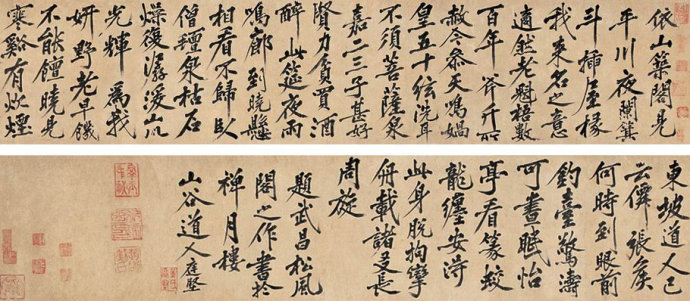 依山築閣見
平川夜闌箕
斗插屋椽
我來名之意
適然老魁梧數
百年斧斤所
赦今參天鳴媧
皇五十弦洗耳
不須菩薩泉
嘉二三子甚好
賢力貧買酒
醉此筵夜雨
鳴廊到曉懸
相看不歸臥
僧氈泉枯石
燥復潺湲山川
光輝為我
妍野老早饑
不能饘曉見
寒谿有炊煙
東坡道人已
去僊張侯
何時到眼前
釣臺驚濤
可晝眠怡
亭看篆蛟
龍纏安淂
此身脫拘攣
併載諸友長
周旋
題武昌松風
閣之作書於
禪月樓
山谷道人庭堅